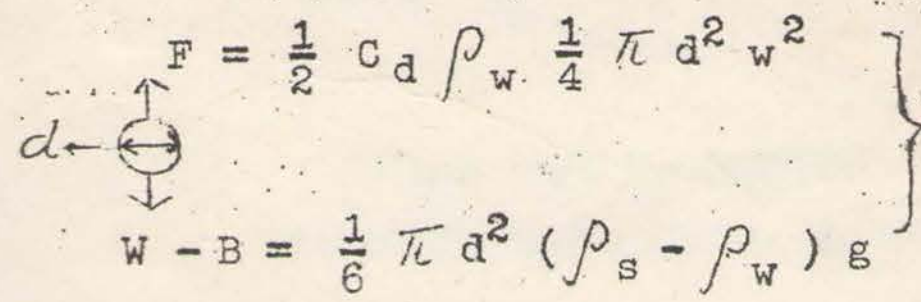 F = 1/2 C_d ρ_w 1/4 π d² w²
d
W - B = 1/6 π d² (ρ_s - ρ_w) g